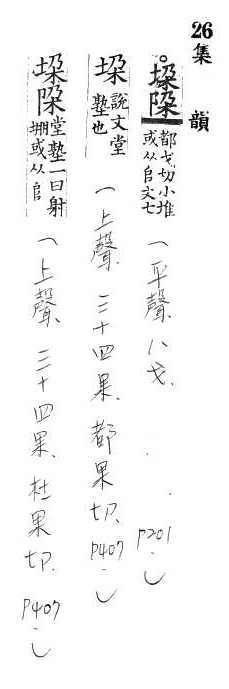 26集韻
。垜陊都戈切小堆或从𨸏文七(平聲八戈. p201.
垛說文堂塾也(上聲.三十四果.都果切.p407.
垛陊堂塾一曰射堋或从𨸏(上聲.三十四果.杜果切.p407.